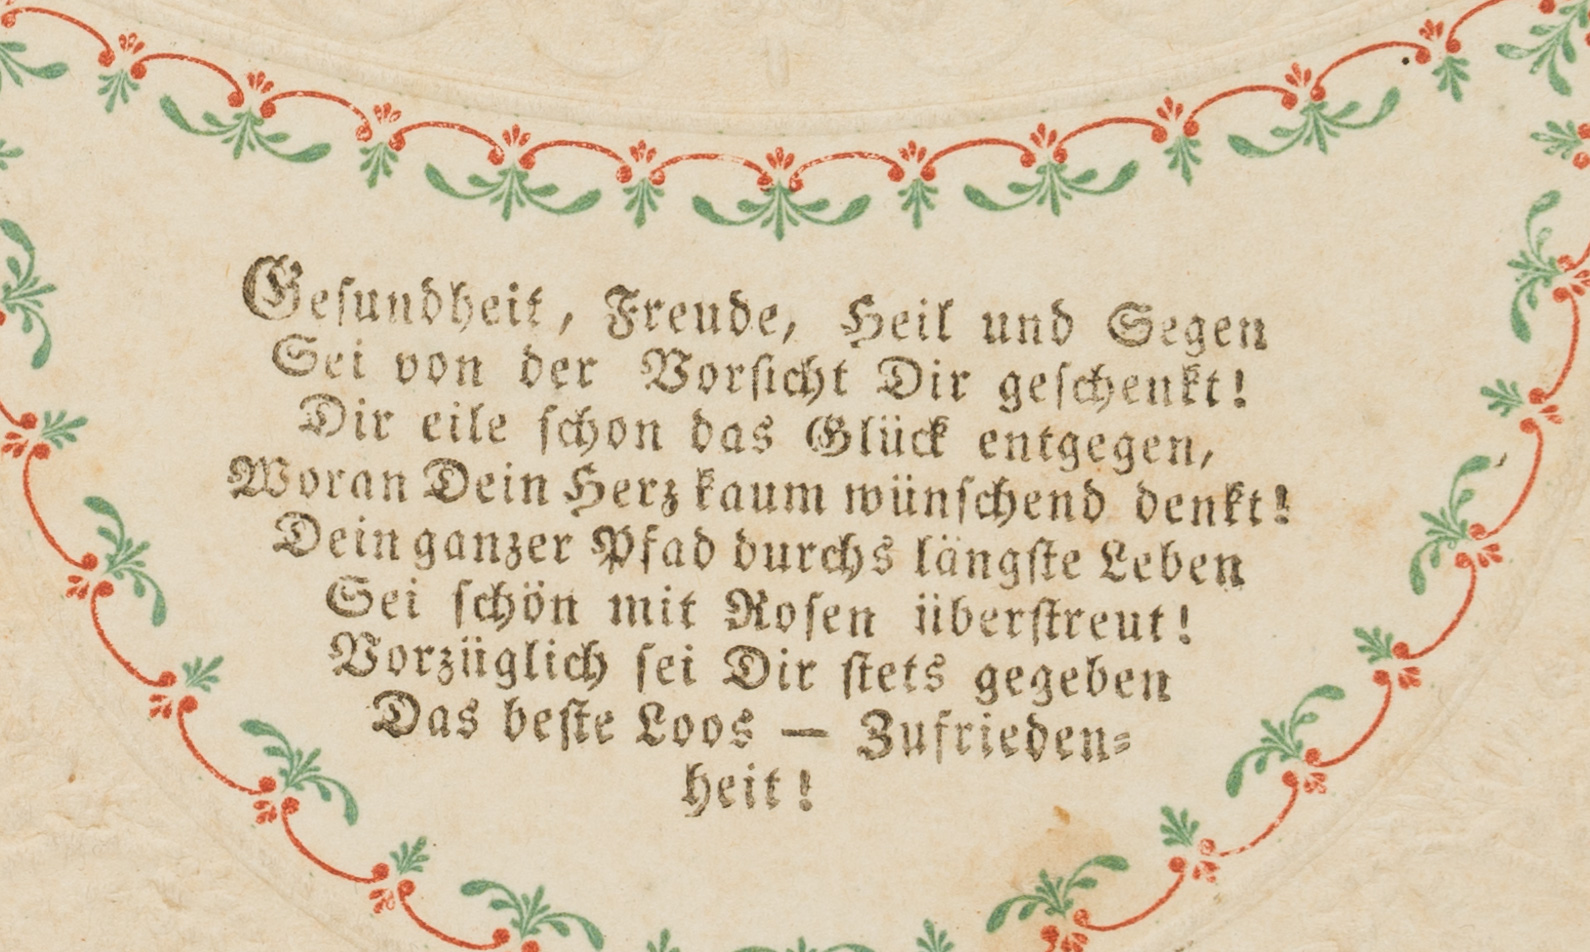 Geſundheit, Freude, Heil und Segen
Sei von der Vorſicht Dir geſchenkt!
Dir eile ſchon das Glück entgegen,
Woran Dein Herz kaum wünſchend denkt!
Dein ganzer Pfad durchs längſte Leben
Sei ſchön mit Roſen überſtreut!
Vorzüglich ſei Dir ſtets gegeben
Das beſte Loos — Zufrieden⸗
heit!